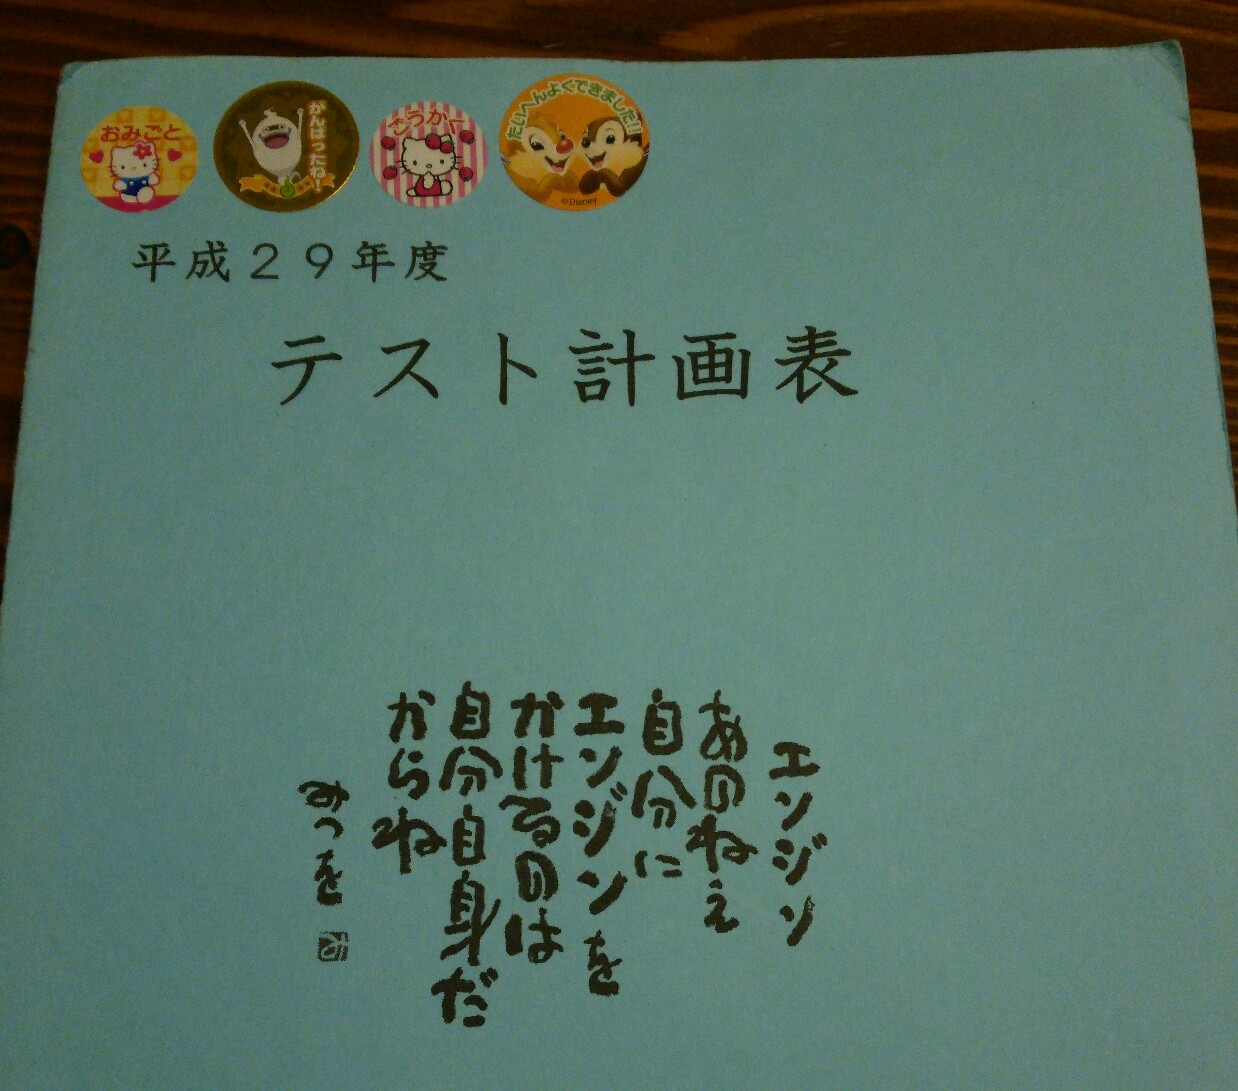 おみごと
がんばったね!
ごうかく
たいへんよくできました!!
©Disney
平成29年度
テスト計画表
エンジン
あのねえ
自分に
エンジンを
かけるのは
自分自身だ
からね
みつを
み